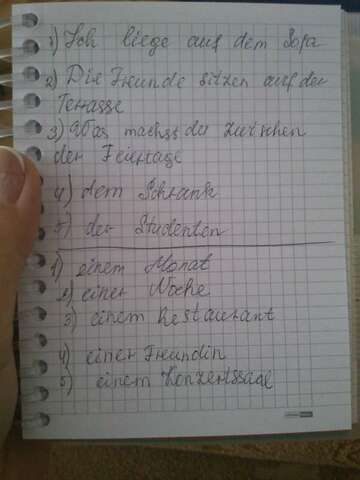 1) Ich liege auf dem Sofa
2) Die Freunde sitzen auf der
Terrasse
3) Was machst du zwischen
den Feiertage
4) dem Schrank
5) der Studenten
1) einem Monat
2) einer Woche
3) einem Restaurant
4) einer Freundin
5) einem Konzertsaal